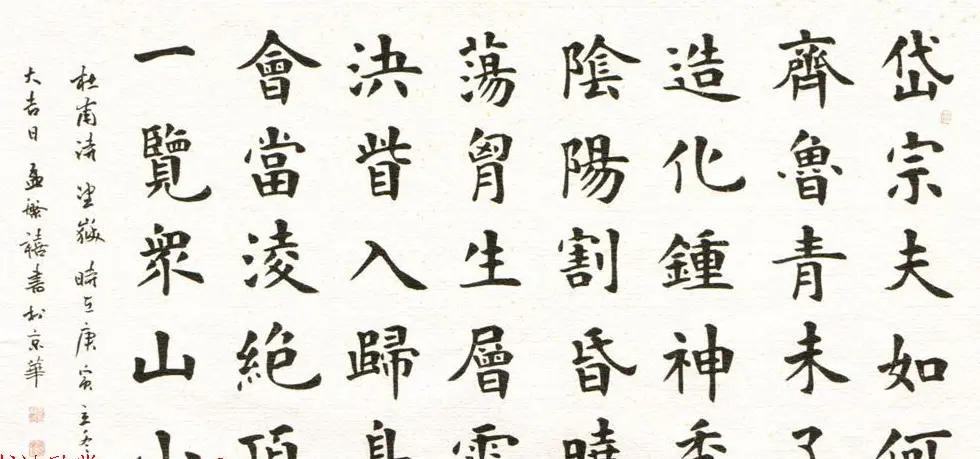 岱宗夫如何
齊魯青未了
造化鍾神秀
陰陽割昏曉
蕩胷生層雲
決眥入歸鳥
會當淩絶頂
一覽衆山小
杜甫詩望嶽時在庚寅立冬
大吉日孟繁禧書於京華